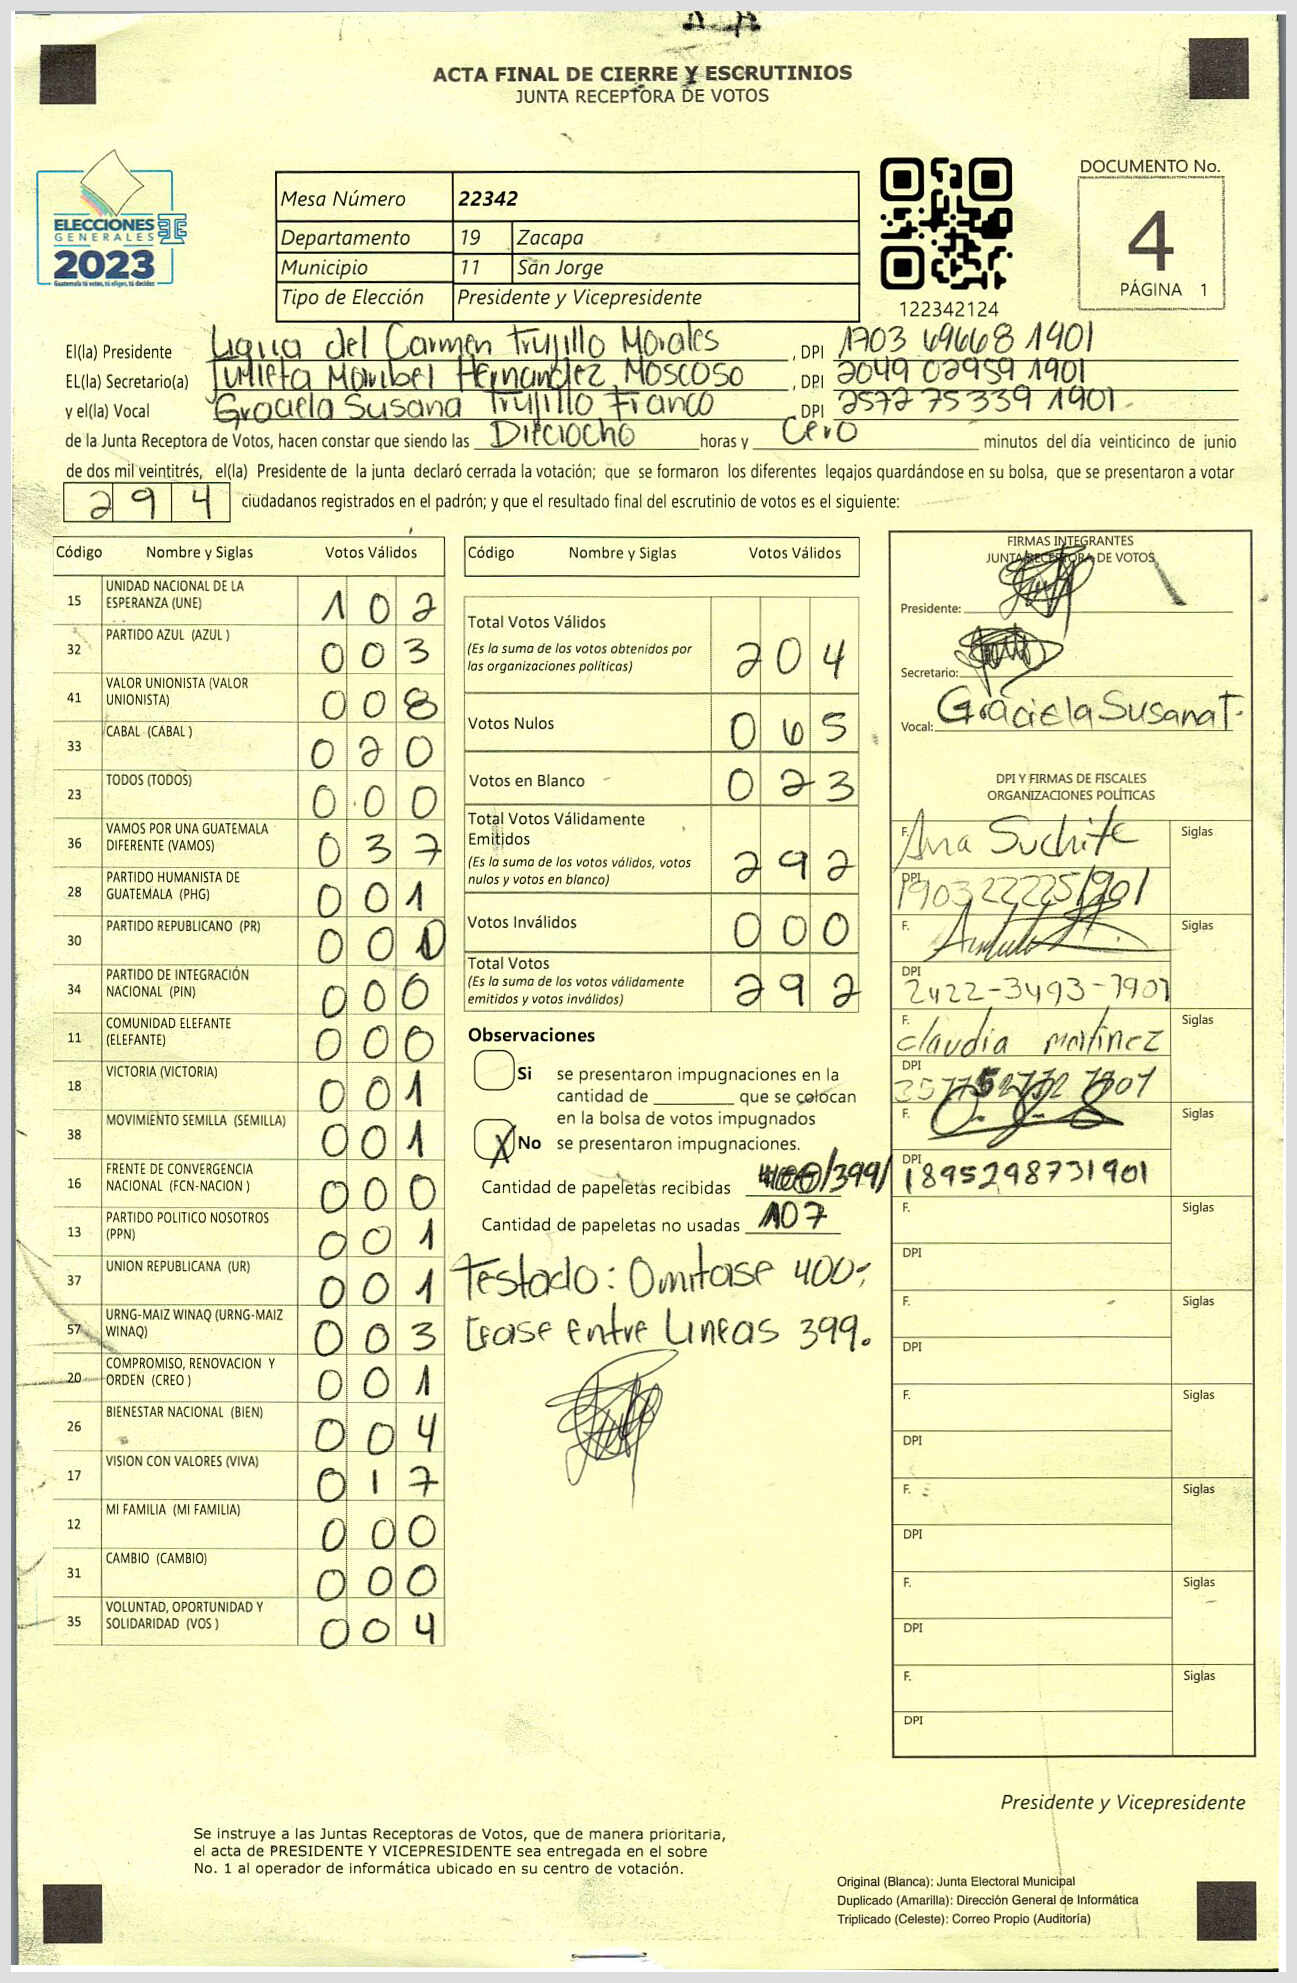 ACTA FINAL DE CIERRE Y ESCRUTINIOS
JUNTA RECEPTORA DE VOTOS
ELECCIONES
GENERALES
2023
Guatemala tú votas, tú eliges, tú decides
Mesa Número 22342
Departamento 19 Zacapa
Municipio 11 San Jorge
Tipo de Elección Presidente y Vicepresidente
122342124
DOCUMENTO No.
4
PÁGINA 1
El(la) Presidente Ligiia del Carmen Trujillo Morales, DPI 1703 69668 1901
EL(la) Secretario(a) Julieta Maribel Hernandez Moscoso, DPI 2049 02959 1901
y el(la) Vocal Graciela Susana Trujillo Franco, DPI 2572 75339 1901
de la Junta Receptora de Votos, hacen constar que siendo las Dieciocho horas y Cero minutos del día veinticinco de junio
de dos mil veintitrés, el(la) Presidente de la junta declaró cerrada la votación; que se formaron los diferentes legajos guardándose en su bolsa, que se presentaron a votar
294 ciudadanos registrados en el padrón; y que el resultado final del escrutinio de votos es el siguiente:
Código Nombre y Siglas Votos Válidos
15 UNIDAD NACIONAL DE LA ESPERANZA (UNE) 102
32 PARTIDO AZUL (AZUL ) 003
41 VALOR UNIONISTA (VALOR UNIONISTA) 008
33 CABAL (CABAL ) 020
23 TODOS (TODOS) 000
36 VAMOS POR UNA GUATEMALA DIFERENTE (VAMOS) 037
28 PARTIDO HUMANISTA DE GUATEMALA (PHG) 001
30 PARTIDO REPUBLICANO (PR) 00
34 PARTIDO DE INTEGRACIÓN NACIONAL (PIN) 000
11 COMUNIDAD ELEFANTE (ELEFANTE) 000
18 VICTORIA (VICTORIA) 001
38 MOVIMIENTO SEMILLA (SEMILLA) 001
16 FRENTE DE CONVERGENCIA NACIONAL (FCN-NACION ) 000
13 PARTIDO POLITICO NOSOTROS (PPN) 001
37 UNION REPUBLICANA (UR) 001
57 URNG-MAIZ WINAQ (URNG-MAIZ WINAQ) 003
20 COMPROMISO, RENOVACION Y ORDEN (CREO ) 001
26 BIENESTAR NACIONAL (BIEN) 004
17 VISION CON VALORES (VIVA) 017
12 MI FAMILIA (MI FAMILIA) 000
31 CAMBIO (CAMBIO) 000
35 VOLUNTAD, OPORTUNIDAD Y SOLIDARIDAD (VOS ) 004
Código Nombre y Siglas Votos Válidos
Total Votos Válidos 204
(Es la suma de los votos obtenidos por
las organizaciones políticas)
Votos Nulos 065
Votos en Blanco 023
Total Votos Válidamente
Emitidos 292
(Es la suma de los votos válidos, votos
nulos y votos en blanco)
Votos Inválidos 000
Total Votos 292
(Es la suma de los votos válidamente
emitidos y votos inválidos)
Observaciones
Si se presentaron impugnaciones en la
cantidad de ________ que se colocan
en la bolsa de votos impugnados
X No se presentaron impugnaciones.
Cantidad de papeletas recibidas 400/399/
Cantidad de papeletas no usadas 107
Testado: Omitase 400-;
Lease entre Lineas 399.
FIRMAS INTEGRANTES
JUNTA RECEPTORA DE VOTOS
Presidente:
Secretario:
Vocal: Graciela Susana T.
DPI Y FIRMAS DE FISCALES
ORGANIZACIONES POLÍTICAS
F. Ana Suchite Siglas
DPI 1903222251901
F. Siglas
DPI 2422-3493-1901
F. Claudia martinez Siglas
DPI
F. Siglas
DPI 1895298731901
F. Siglas
DPI
F. Siglas
DPI
F. Siglas
DPI
F. Siglas
DPI
F. Siglas
DPI
F. Siglas
DPI
Presidente y Vicepresidente
Se instruye a las Juntas Receptoras de Votos, que de manera prioritaria,
el acta de PRESIDENTE Y VICEPRESIDENTE sea entregada en el sobre
No. 1 al operador de informática ubicado en su centro de votación.
Original (Blanca): Junta Electoral Municipal
Duplicado (Amarilla): Dirección General de Informática
Triplicado (Celeste): Correo Propio (Auditoría)